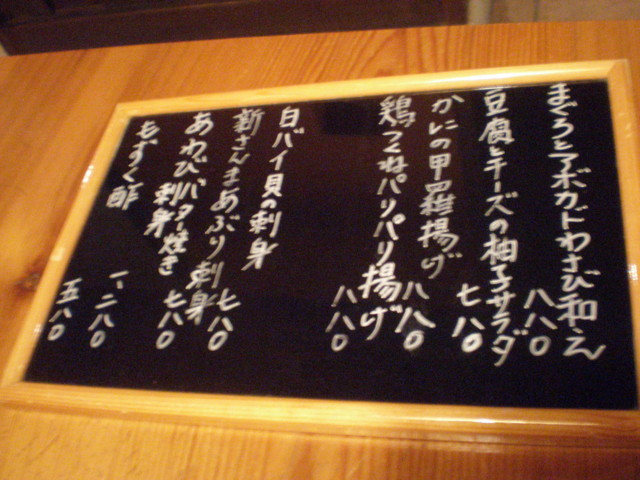 まぐろとアボカドわさび和え
八八〇
豆腐とチーズの柚子サラダ
七八〇
かにの甲羅揚げ
八八〇
鶏つくねパリパリ揚げ
八八〇
白バイ貝の刺身
七八〇
新さんまあぶり刺身
七八〇
あわびバター焼き
刺身
一、二八〇
もずく酢
五八〇